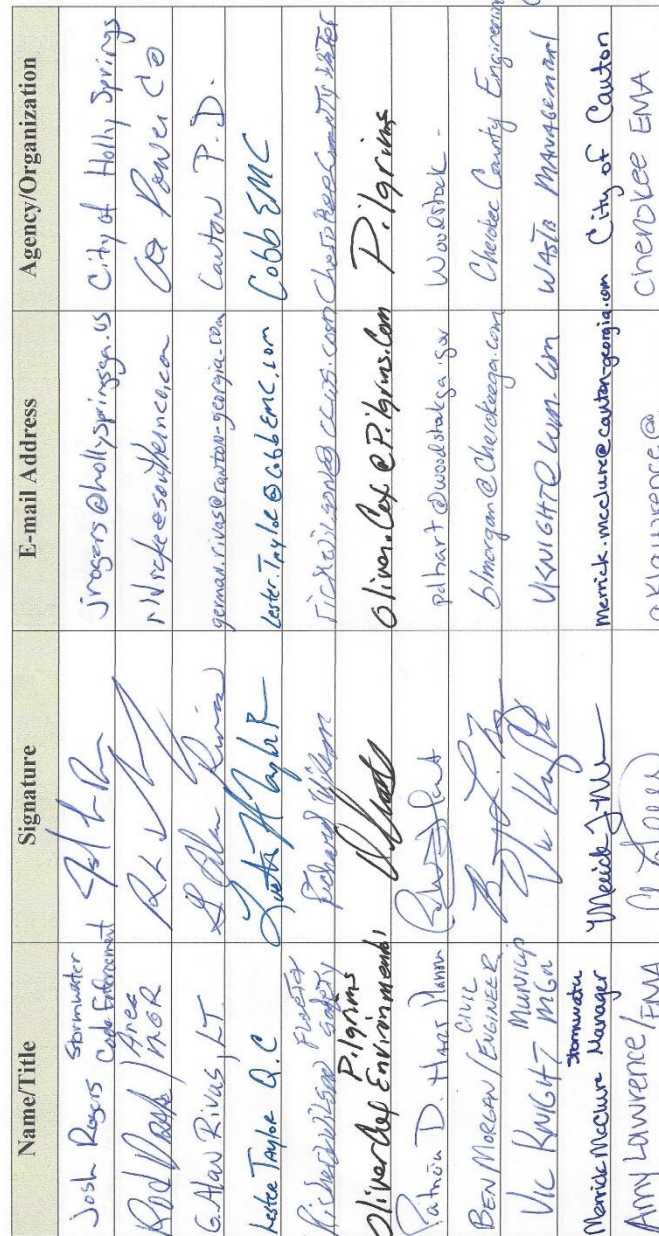 Name/Title Signature E-mail Address Agency/Organization
Josh Rogers Stormwater Code Enforcement jrogers@hollyspringsga.us City of Holly Springs
Area MGR Ga Power Co
G. Alan Rivas, LT. german.rivas@canton-georgia.com Canton P.D.
Lester Taylor Q.C Lester.Taylor@CobbEMC.com Cobb EMC
Richard Wilson Safety Richard Wilson
Oliver Cox Pilgrims Environmental Oliver.Cox@Pilgrims.Com Pilgrims
D. Hart Woodstock
BEN MORGAN/CIVIL ENGINEER blmorgan@cherokeega.com Cherokee County Engineering
Vic KNIGHT MUNICIP MGR VKNIGHT@wm.com WASTE MANAGEMENT
Merrick McClure Stormwater Manager merrick.mcclure@canton-georgia.com City of Canton
Amy Lawrence/EMA Cherokee EMA